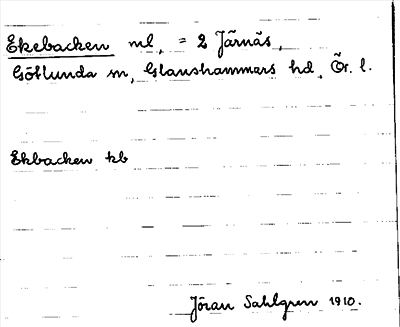 Ekebacken ml, = 2 Järnäs,
Götlunda sn, Glanshammars hd, Ör. l.
Ekbacken kb
Jöran Sahlgren 1910.